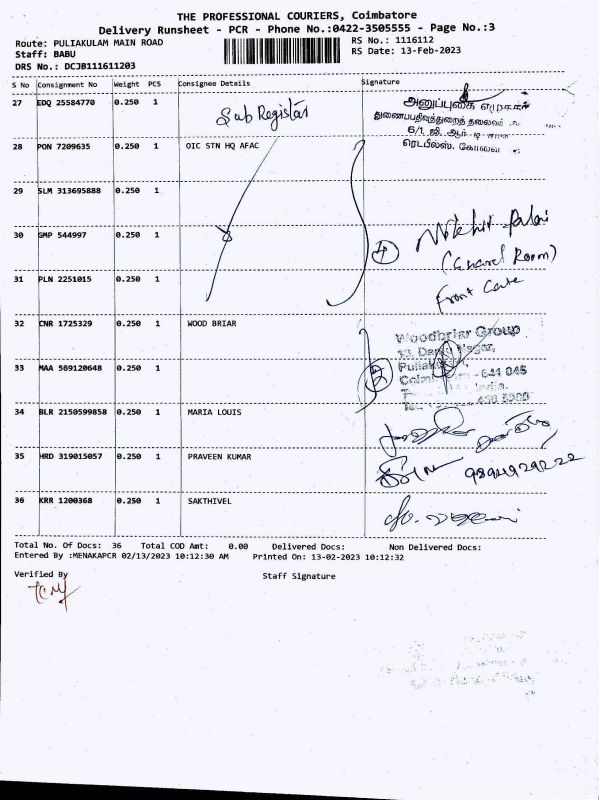 THE PROFESSIONAL COURIERS, Coimbatore
Delivery Runsheet - PCR - Phone No.:0422-3505555 - Page No.:3
Route: PULIAKULAM MAIN ROAD
RS No.: 1116112
Staff: BABU
RS Date: 13-Feb-2023
DRS No.: DCJB111611203
S No Consignment No Weight PCS Consignee Details Signature
27 EDQ 25584770 0.250 1 Sub Registar
அனுப்புகை
துணைபதிவுத்துறைத் தலைவர்
6/1, ஜி. ஆர். டி
ரெட்பீல்ஸ், கோவை
28 PON 7209635 0.250 1 OIC STN HQ AFAC
29 SLM 313695888 0.250 1
30 GMP 544997 0.250 1
4
(Guard Room)
31 PLN 2251015 0.250 1
Front Gate
32 CNR 1725329 0.250 1 WOOD BRIAR
Woodbriar Group
33 MAA 569120648 0.250 1
2
34 BLR 2150599858 0.250 1 MARIA LOUIS
35 HRD 319015057 0.250 1 PRAVEEN KUMAR
36 KRR 1200368 0.250 1 SAKTHIVEL
Total No. Of Docs: 36 Total COD Amt: 0.00 Delivered Docs: Non Delivered Docs:
Entered By :MENAKAPCR 02/13/2023 10:12:30 AM Printed On: 13-02-2023 10:12:32
Verified By
Staff Signature